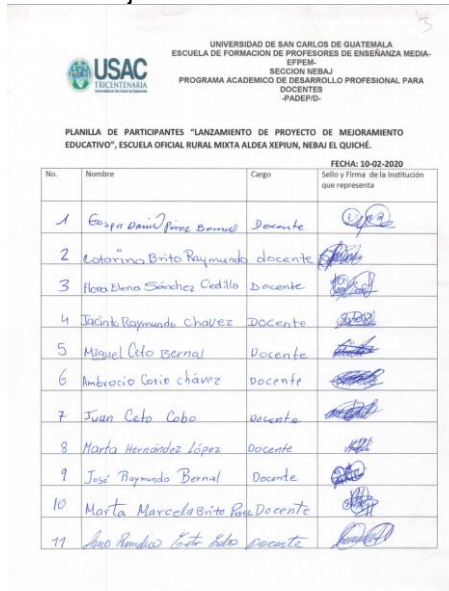 UNIVERSIDAD DE SAN CARLOS DE GUATEMALA
ESCUELA DE FORMACION DE PROFESORES DE ENSEÑANZA MEDIA-
EFPEM-
SECCION NEBAJ
PROGRAMA ACADEMICO DE DESARROLLO PROFESIONAL PARA
DOCENTES
-PADEP/D-
USAC
TRICENTENARIA
PLANILLA DE PARTICIPANTES "LANZAMIENTO DE PROYECTO DE MEJORAMIENTO
EDUCATIVO", ESCUELA OFICIAL RURAL MIXTA ALDEA XEPIUN, NEBAJ EL QUICHÉ.
FECHA: 10-02-2020
No. Nombre Cargo Sello y Firma de la Institución
que representa
1 Daniel Pérez Bernal Docente
2 Catarina Brito Raymundo docente
3 Elena Sánchez Cedillo Docente
4 Jacinto Raymundo chávez Docente
5 Miguel Ceto Bernal Docente
6 Ambrocio Corio chávez Docente
7 Juan Ceto Cobo Docente
8 Marta Hernández López Docente
9 José Raymundo Bernal Docente
10 Marta Marcela Brito Docente
11 Docente